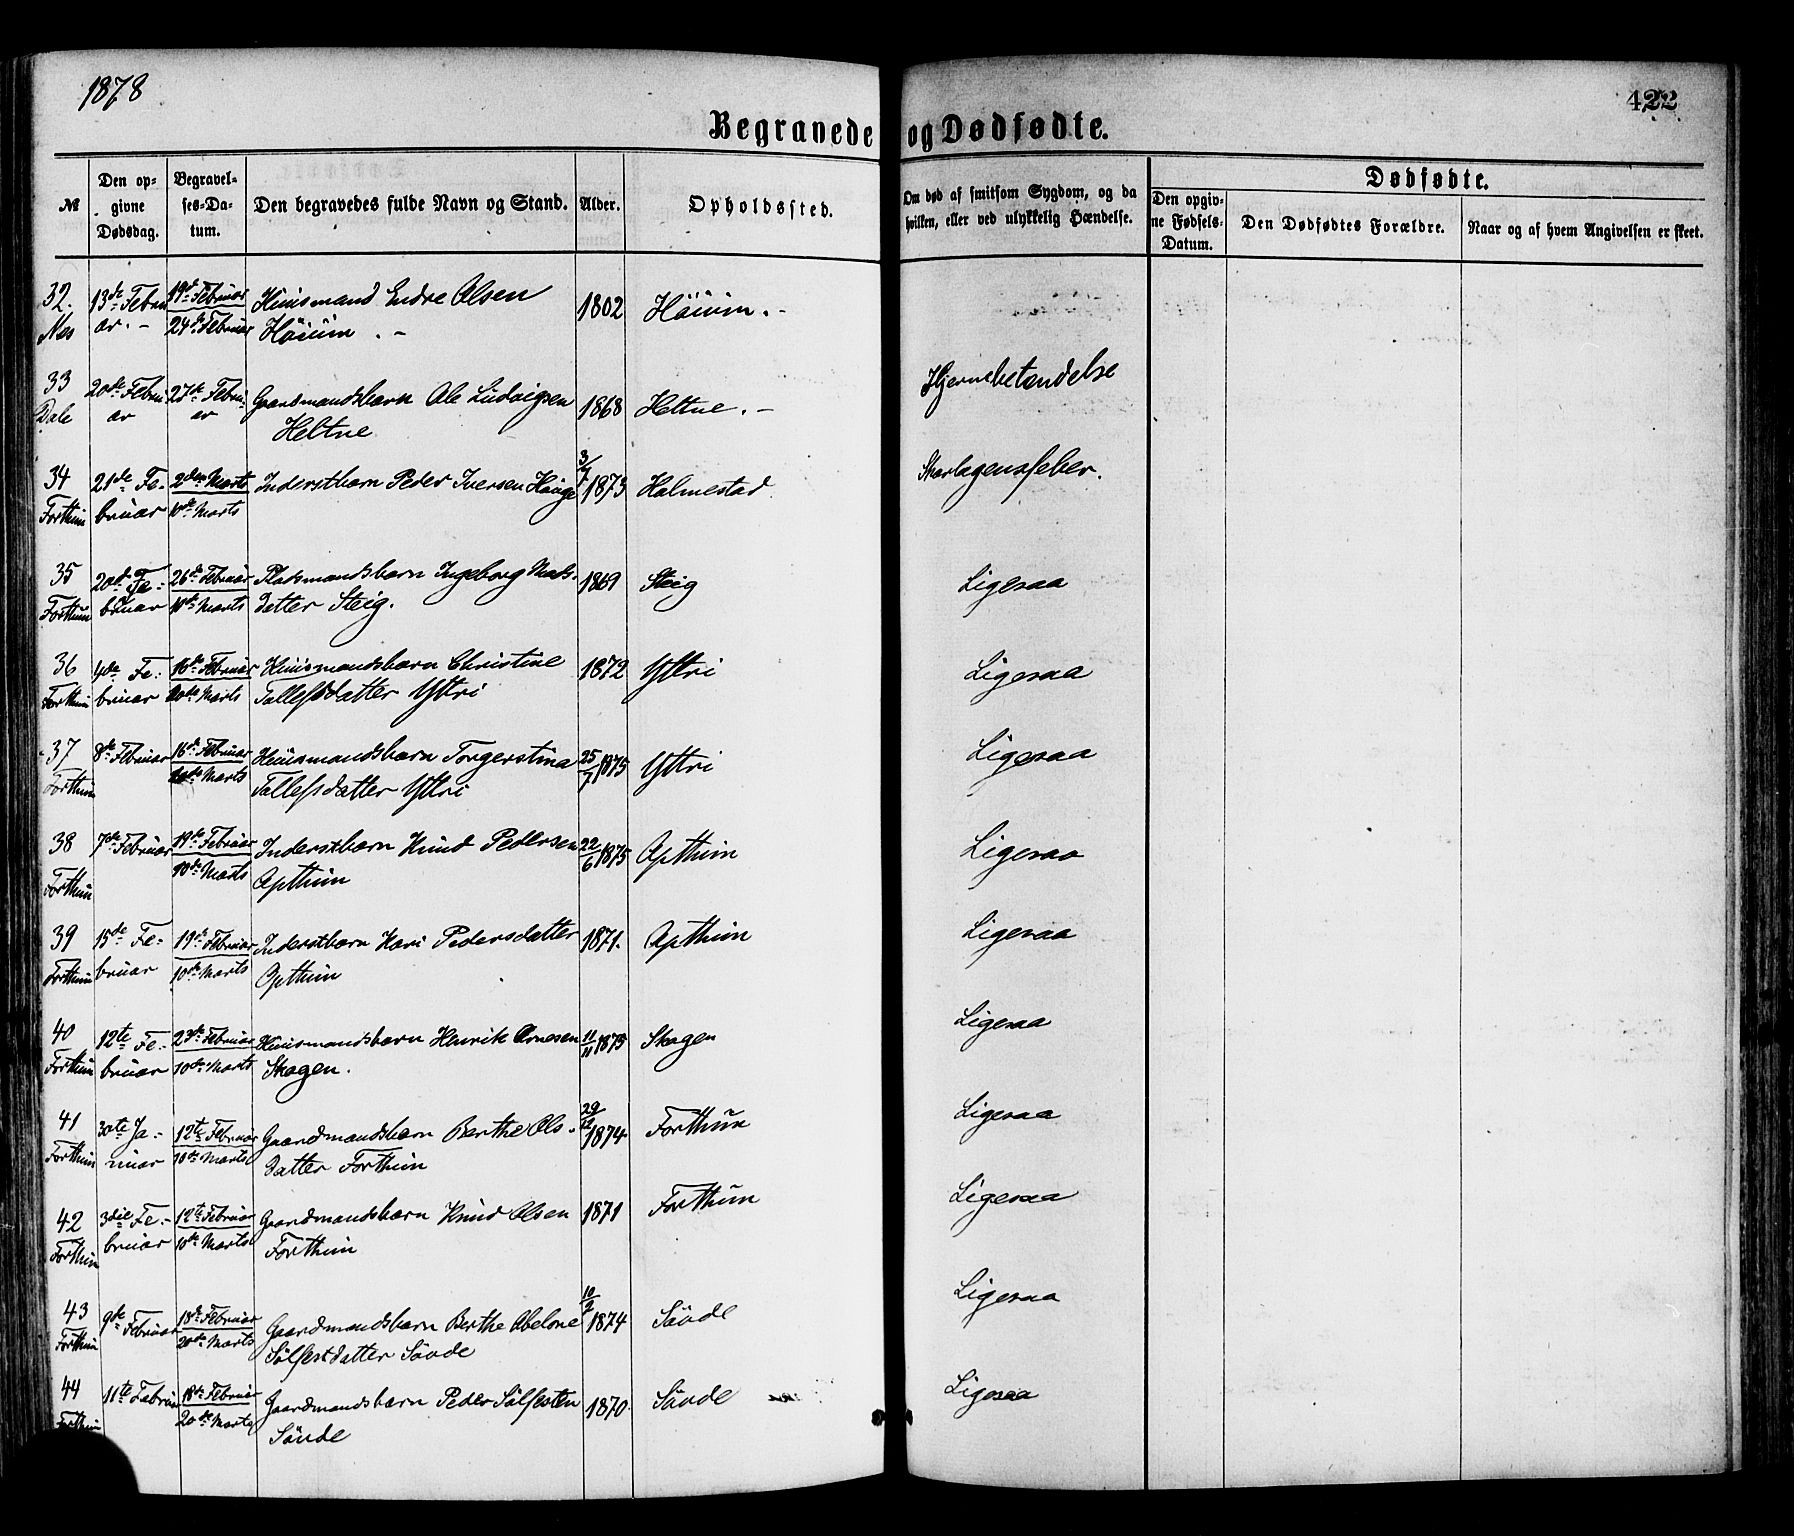 1878
422
Begravede og Dødfødte.
№
Den opgivne Dødsdag.
Begravelses-Datum.
Den begravedes fulde Navn og Stand.
Alder.
Opholdssted.
Om død af smitsom Sygdom, og da hvilken, eller ved ulykkelig Hændelse.
Dødfødte.
Den opgivne Fødsels-Datum.
Den Dødfødtes Forældre.
Naar og af hvem Angivelsen er skeet.
32. Næs 13de Februar. - 19de Februar 24de Februar Huusmand Endre Olsen Höium. - 1802 Höium. -
33 Dale 20de Februar 27de Februar Gaardmandsbarn Ole Ludvigsen Heltne 1868 Heltne. - Hjernebetændelse
34 Forthun 21de Februar 2den Marts 10de Marts Inderstbarn Peder Iversen Hauge 3/7 1873 Holmestad Skarlagensfeber.
35 Forthun 20de Februar 26de Februar 10de Marts Pladsmandsbarn Ingeborg Matsdatter Steig. 1869 Steig Ligesaa
36 Forthun 4de Februar 16de Februar 20de Marts Huusmandsbarn Christine Tollefsdatter Yttri 1872 Yttri Ligesaa
37 Forthun 8de Februar 16de Februar Marts Huusmandsbarn Torgerstina Tollefsdatter Yttri 25/7 1875 Yttri Ligesaa
38 Forthun 7de Februar 19de Februar 10de Marts Inderstbarn Knud Pedersen Opthun 22/6 1875 Opthun Ligesaa
39 Forthun 15de Februar 19de Februar 10de Marts Inderstbarn Kari Pedersdatter Opthun 1871. Opthun Ligesaa
40 Forthun 12te Februar 23de Februar 10de Marts Huusmandsbarn Henrik Arnesen Skagen. 11/11 1875 Skagen Ligesaa
41 Forthun 30te Januar 12te Februar 10de Marts Gaardmandsbarn Berthe Olsdatter Forthun 1874. Forthun Ligesaa
42 Forthun 3die Februar 12te Februar 10de Marts Gaardmandsbarn Knud Olsen Forthun 1871 Forthun Ligesaa
43 Forthun 9de Februar 18de Februar 20de Marts Gaardmandsbarn Berthe Abelone Sölfestdatter Sövde 10/9 1874 Sövde Ligesaa
44 Forthun 11te Februar 18de Februar 20de Marts Gaardmandsbarn Peder Sölfesten Sövde 1870. Sövde Ligesaa